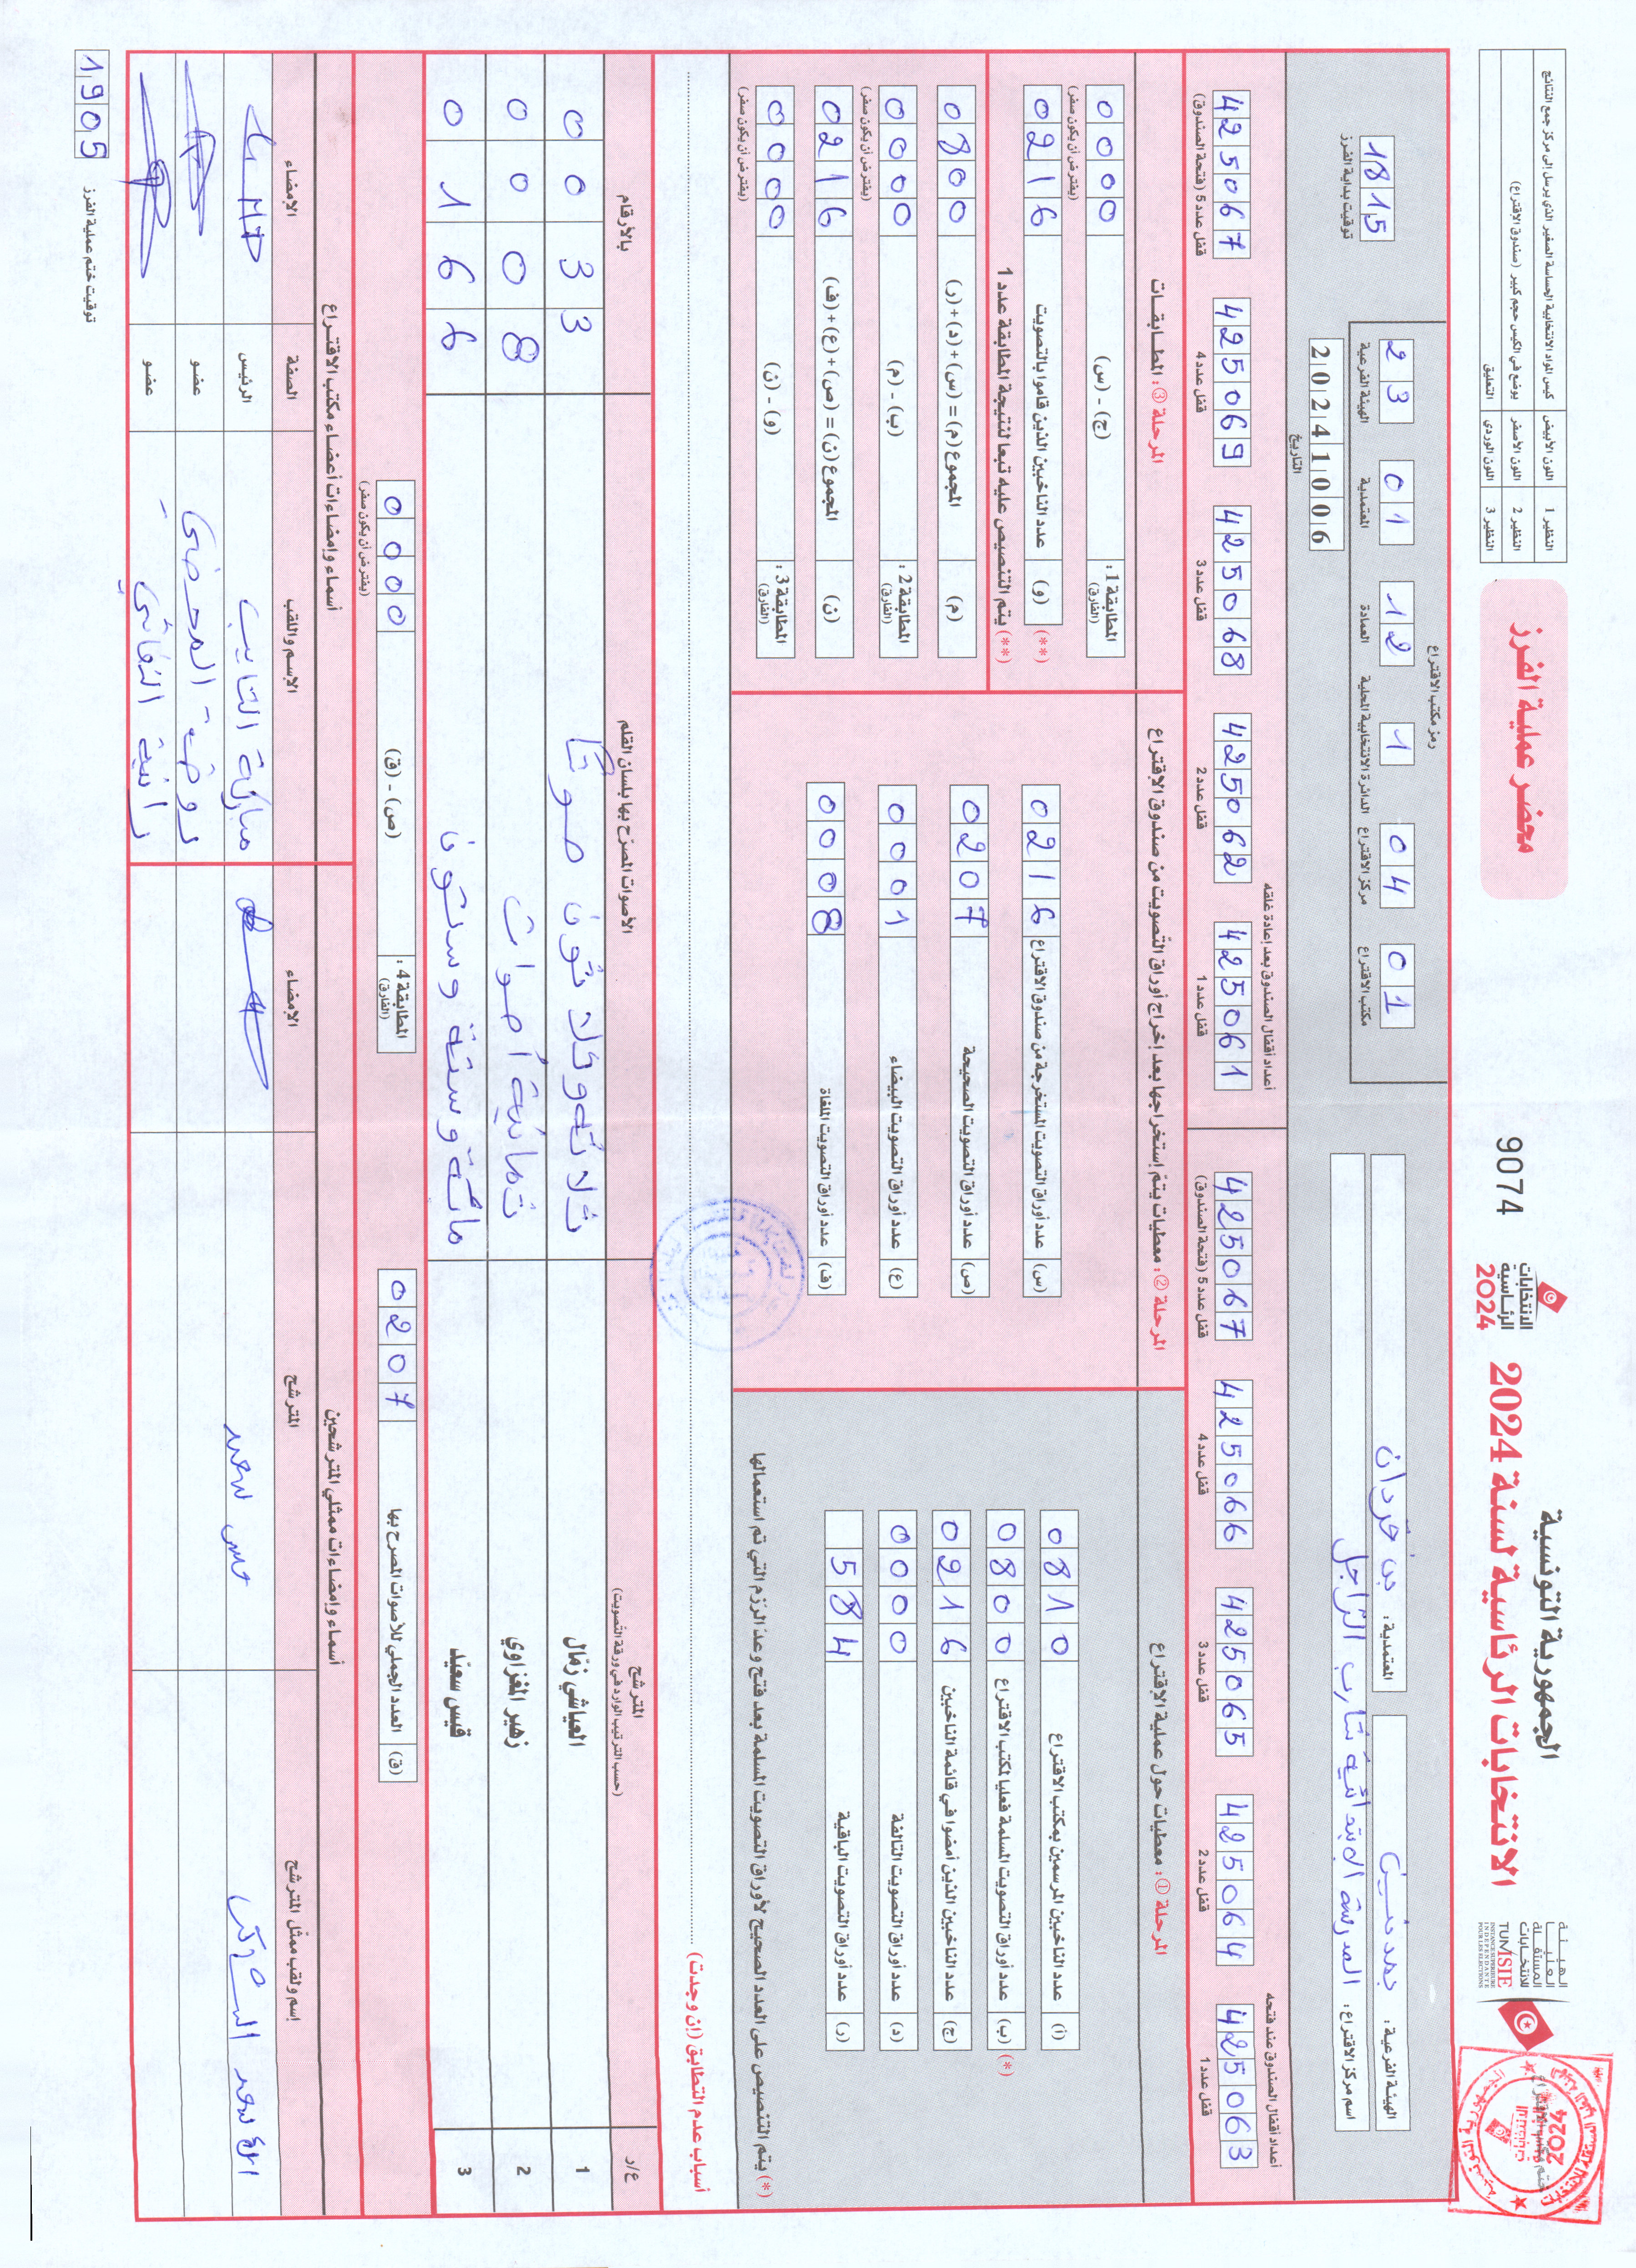 الجمهورية التونسية
الانتخابات الرئاسية لسنة 2024
الانتخابات
الرئاسية
2024
9074
محضر عملية الفرز
الهيئة
العليا
المستقلة
للانتخابات
TUNISIE
INSTANCE SUPERIEURE
INDEPENDANTE
POUR LES ELECTIONS
النظير 1 اللون الأبيض كيس المواد الانتخابية الحساسة الصغير الذي يرسل إلى مركز جمع النتائج
النظير 2 اللون الأصفر يوضع في الكيس حجم كبير (صندوق الاقتراع)
النظير 3 اللون الوردي التعليق
الهيئة الفرعية : مدنين المعتمدية : بن قردان
اسم مركز الاقتراع : المدرسة الابتدائية شارب الراجل
رمز مكتب الاقتراع
23 01 12 1 04 01
الهيئة الفرعية المعتمدية العمادة الدائرة الانتخابية المحلية مركز الاقتراع مكتب الاقتراع
20241006
التاريخ
1815
توقيت بداية الفرز
أعداد أقفال الصندوق عند فتحه
425063 425064 425065 425066 425067
قفل عدد 1 قفل عدد 2 قفل عدد 3 قفل عدد 4 قفل عدد 5 (فتحة الصندوق)
أعداد أقفال الصندوق بعد إعادة غلقه
425061 425062 425068 425069 425067
قفل عدد 1 قفل عدد 2 قفل عدد 3 قفل عدد 4 قفل عدد 5 (فتحة الصندوق)
المرحلة ① : معطيات حول عملية الاقتراع
(أ) عدد الناخبين المرسمين بمكتب الاقتراع 0810
(ب) (*) عدد أوراق التصويت المسلمة فعليا لمكتب الاقتراع 0800
(ج) عدد الناخبين الذين أمضوا في قائمة الناخبين 0216
(د) عدد أوراق التصويت التالفة 0000
(ر) عدد أوراق التصويت الباقية 584
(*) يتم التنصيص على العدد الصحيح لأوراق التصويت المسلمة بعد فتح وعدّ الرزم التي تم استعمالها
المرحلة ② : معطيات يتمّ إستخراجها بعد إخراج أوراق التصويت من صندوق الاقتراع
(س) عدد أوراق التصويت المستخرجة من صندوق الاقتراع 0216
(ص) عدد أوراق التصويت الصحيحة 0207
(ع) عدد أوراق التصويت البيضاء 0001
(ف) عدد أوراق التصويت الملغاة 0008
المرحلة ③ : المطابقات
المطابقة 1 : (الفارق) (ج) - (س) 0000
(يفترض أن يكون صفر)
(**) (و) عدد الناخبين الذين قاموا بالتصويت 0216
(**) يتم التنصيص عليه تبعا لنتيجة المطابقة عدد 1
(م) المجموع (م) = (س) + (د) + (ر) 0800
المطابقة 2 : (الفارق) (ب) - (م) 0000
(يفترض أن يكون صفر)
(ن) المجموع (ن) = (ص) + (ع) + (ف) 0216
المطابقة 3 : (الفارق) (و) - (ن) 0000
(يفترض أن يكون صفر)
أسباب عدم التطابق (إن وجدت)
ع/ر المترشح (حسب الترتيب الوارد في ورقة التصويت) الأصوات المصرّح بها بلسان القلم بالأرقام
1 العياشي زمّال ثلاثة وثلاثون صوتًا 0033
2 زهير المغزاوي ثمانية أصوات 0008
3 قيس سعيّد مائة وستة وستون 0166
(ق) العدد الجملي للأصوات المصرح بها 0207
المطابقة 4 : (الفارق) (ص) - (ق) 0000
(يفترض أن يكون صفر)
أسماء وإمضاءات ممثلي المترشحين
إسم ولقب ممثل المترشح المترشح الإمضاء
قيس سعيد
أسماء وإمضاءات أعضاء مكتب الاقتراع
الإسم واللقب الصفة الإمضاء
مباركة التايب الرئيس
روضة عضو
رانية عضو
1905
توقيت ختم عملية الفرز